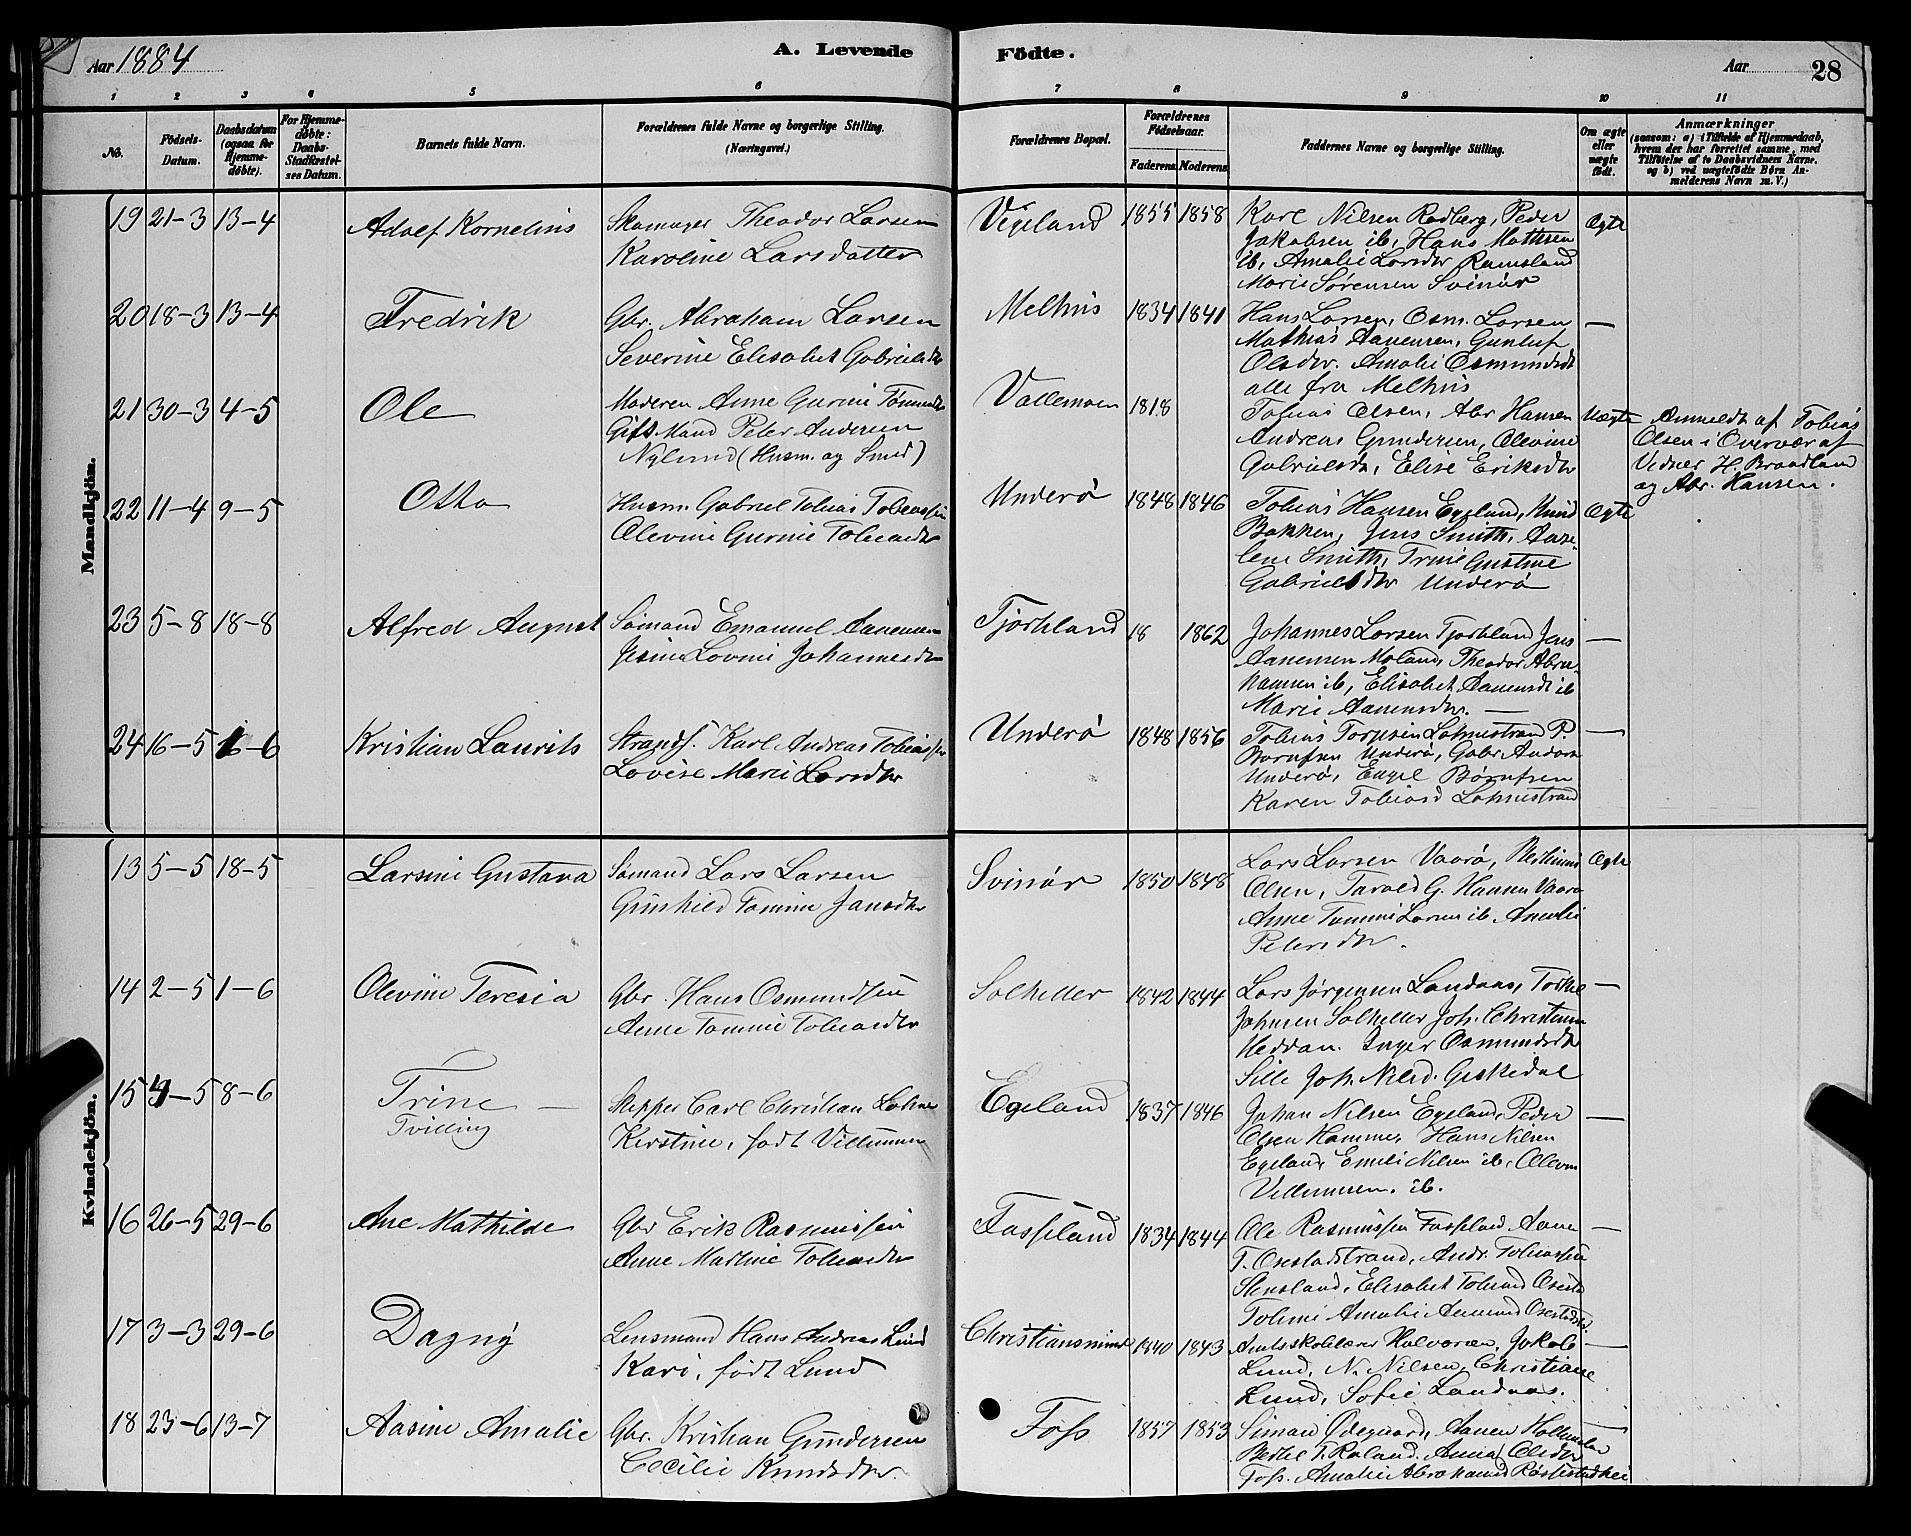 Aar 1884
A. Levende
Födte.
Aar
28
1 2 3 4 5 6 7 8 9 10 11
No.
Födsels-Datum.
Daabsdatum (ogsaa for Hjemmedøbte).
For Hjemmedøbte: Daabs-Stadfæstelses Datum.
Barnets fulde Navn.
Forældrenes fulde Navne og borgerlige Stilling. (Næringsvei.)
Forældrenes Bopæl.
Forældrenes Fødselsaar.
Faderens Moderens
Faddernes Navne og borgerlige Stilling.
Om ægte eller uægte født.
Anmærkninger
(saasom: a) i Tilfælde af Hjemmedaab,
hvem der har forrettet samme, med
Tilföielse af to Daabsvidners Navne,
og b) ved uægtefødte Børn An-
melderens Navn m. V.)
Mandkjön.
19 21-3 13-4 Adolf Kornelius
Skomager Theodor Larsen
Karoline Larsdatter
Vigeland 1855 1858
Karl Nilsen Rodberg, Peder
Jakobsen ib, Hans Mathisen
ib, Amalie Larsdtr Ramsland
Marie Sørensen Svinör
Ægte
20 18-3 13-4 Fredrik
Gbr. Abraham Larsen
Severine Elisabet Gabrielsdtr
Melhus 1834 1841
Hans Larsen, Osm. Larsen
Mathias Aanensen, Gunluf
Olsdtr. Amalie Osmundsdt
alle fra Melhus
—
21 30-3 4-5 Ole
Moderen Anne Gurine Tønnesdtr
Gift Mand Peter Andersen
Nylund (Husm. og Smed)
Vallemoen 1818
Tobias Olsen, Abr Hansen
Andreas Gundersen, Olevine
Gabrielsdtr, Elise Eriksdtr
Uægte
Anmeldt af Tobias
Olsen i Overvær af
Vidner H. Braadland
og Abr. Hansen.
22 11-4 9-5 Otto
Husm. Gabriel Tobias Tobiassen
Olevine Gurine Tobiasdtr
Underö 1848 1846
Tobias Hansen Egeland, Knud
Bakken, Jens Smith,
Smith, Trine Gustine
Gabrielsdtr Underö
Ægte
23 5-8 18-8 Alfred August
Sömand Emanuel Aanensen
Jesine Lovine Johannesdtr
Tjorkland 18 1862
Johannes Larsen Tjorkland Jens
Aanensen Moland, Theodor Abra-
hamsen ib, Elisabet Aanensdt ib
Marie Aanensdtr. —
—
24 16-5 1-6 Kristian Laurits
Strands. Karl Andreas Tobiassen
Lovise Marie Larsdtr
Underö 1848 1856
Tobias Torjusen Lohnestrand P.
Bornfsen Underö, Gabr Anders
Underö, Engel Börnfsen
Karen Tobiasd Lohnestrand
—
Kvindekjön.
13 5-5 18-5 Larsine Gustava
Sömand Lars Larsen
Gunhild Tomine Jansdtr
Svinör 1850 1848
Lars Larsen Vaarö,
Olsen, Tarald G. Hansen Vaarö
Anne Tomine Larsen ib. Amalie
Petersdtr.
Ægte
14 2-5 1-6 Olevine Teresia
Gbr. Hans Osmundsen
Anne Tomine Tobiasdtr
Solheller 1842 1844
Lars Jørgensen Landaas, Torkel
Johnsen Solheller Joh. Christensen
Heddan. Inger Osmundsdtr
Sille Joh. Nilsd. Geskedal
—
15 4-5 8-6 Trine —
Tvilling
Skipper Carl Christian Lohne
Kerstine, født Villumsen
Egeland 1837 1846
Johan Nilsen Egeland, Peder
Olsen Hammer, Hans Nilsen
Egeland, Emili Nilsen ib, Olevine
Villumsen. ib.
—
16 26-5 29-6 Ane Mathilde
Gbr Erik Rasmussen
Anne Martine Tobiasdtr
Fasseland 1834 1844
Ole Rasmussen Fasseland Aanen
T. Osestadstrand, Andr. Tobiassen
Stensland, Elisabet Tobiasd Osestad
Tobine Amalie Aanensd Osestadstr.
—
17 3-3 29-6 Dagny
Lensmand Hans Andreas Lund
Kari, født Lund
Christiansminde 1840 1843
Amtsskolelærer Halvorsen, Jakob
Lund, N. Nilsen, Christiane
Lund, Sofie Landaas.
—
18 23-6 13-7 Aasine Amalie
Gbr. Kristian Gundersen
Cecilie Knudsdtr
Foss 1857 1853
Simon Ødegaard, Aanen
Berthel T. Roland, Anna Olsdtr
Foss. Amalie Abrahamsd Röstestadhei
—